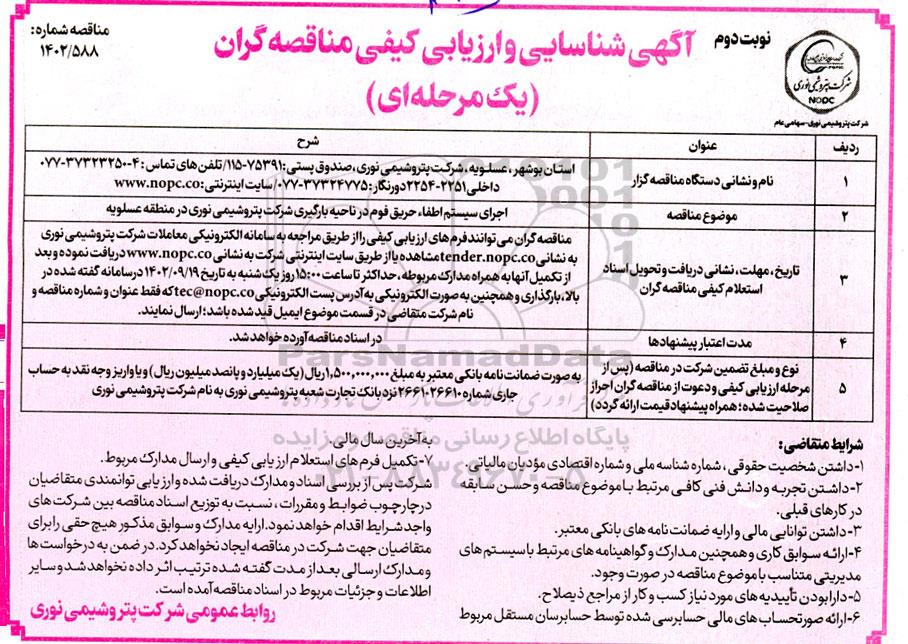 مناقصه شماره:
۱۴۰۲/۵۸۸
نوبت دوم
آگهی شناسایی و ارزیابی کیفی مناقصه گران
(یک مرحله‌ای)
شرکت پتروشیمی نوری
NOPC
شرکت پتروشیمی نوری-سهامی عام
ردیف عنوان شرح
۱ نام و نشانی دستگاه مناقصه گزار
استان بوشهر، عسلویه، شرکت پتروشیمی نوری، صندوق پستی: ۷۵۳۹۱-۱۱۵/تلفن های تماس: ۴-۳۷۳۲۳۲۵۰-۰۷۷
داخلی ۲۲۵۱-۲۲۵۴ دورنگار: ۳۷۳۲۴۷۷۵-۰۷۷/ سایت اینترنتی: www.nopc.co
۲ موضوع مناقصه
اجرای سیستم اطفاء حریق فوم در ناحیه بارگیری شرکت پتروشیمی نوری در منطقه عسلویه
۳ تاریخ، مهلت، نشانی دریافت و تحویل اسناد
استعلام کیفی مناقصه گران
مناقصه گران می توانند فرم های ارزیابی کیفی را از طریق مراجعه به سامانه الکترونیکی معاملات شرکت پتروشیمی نوری
به نشانی tender.nopc.co مشاهده یا از طریق سایت اینترنتی شرکت به نشانی www.nopc.co دریافت نموده و بعد
از تکمیل آنها به همراه مدارک مربوطه، حداکثر تا ساعت ۱۵:۰۰ روز یک شنبه به تاریخ ۱۴۰۲/۰۹/۱۹ در سامانه گفته شده در
بالا، بارگذاری و همچنین به صورت الکترونیکی به آدرس پست الکترونیکی tec@nopc.co که فقط عنوان و شماره مناقصه و
نام شرکت متقاضی در قسمت موضوع ایمیل قید شده باشد؛ ارسال نمایند.
۴ مدت اعتبار پیشنهادها
در اسناد مناقصه آورده خواهد شد.
۵ نوع و مبلغ تضمین شرکت در مناقصه (پس از
مرحله ارزیابی کیفی و دعوت از مناقصه گران احراز
صلاحیت شده؛ همراه پیشنهاد قیمت ارائه گردد)
به صورت ضمانت نامه بانکی معتبر به مبلغ ۱,۵۰۰,۰۰۰,۰۰۰ ریال (یک میلیارد و پانصد میلیون ریال) و یا واریز وجه نقد به حساب
جاری شماره ۲۶۶۱۰۲۶۶۱۰ نزد بانک تجارت شعبه پتروشیمی نوری به نام شرکت پتروشیمی نوری
ParsNamadData
پایگاه اطلاع رسانی مناقصه و مزایده
شرایط متقاضی:
۱-داشتن شخصیت حقوقی، شماره شناسه ملی و شماره اقتصادی مؤدیان مالیاتی
۲-داشتن تجربه و دانش فنی کافی مرتبط با موضوع مناقصه و حسن سابقه
در کارهای قبلی.
۳-داشتن توانایی مالی و ارایه ضمانت نامه های بانکی معتبر.
۴-ارائه سوابق کاری و همچنین مدارک و گواهینامه های مرتبط با سیستم های
مدیریتی متناسب با موضوع مناقصه در صورت وجود.
۵-دارا بودن تأییدیه های مورد نیاز کسب و کار از مراجع ذیصلاح.
۶-ارائه صورتحساب های مالی حسابرسی شده توسط حسابرسان مستقل مربوط
به آخرین سال مالی.
۷-تکمیل فرم های استعلام ارزیابی کیفی و ارسال مدارک مربوط.
شرکت پس از بررسی اسناد و مدارک دریافت شده و ارزیابی توانمندی متقاضیان
در چارچوب ضوابط و مقررات، نسبت به توزیع اسناد مناقصه بین شرکت های
واجد شرایط اقدام خواهد نمود. ارایه مدارک و سوابق مذکور هیچ حقی را برای
متقاضیان جهت شرکت در مناقصه ایجاد نخواهد کرد. در ضمن به درخواست ها
و مدارک ارسالی بعد از مدت گفته شده ترتیب اثر داده نخواهد شد و سایر
اطلاعات و جزئیات مربوط در اسناد مناقصه آمده است.
روابط عمومی شرکت پتروشیمی نوری